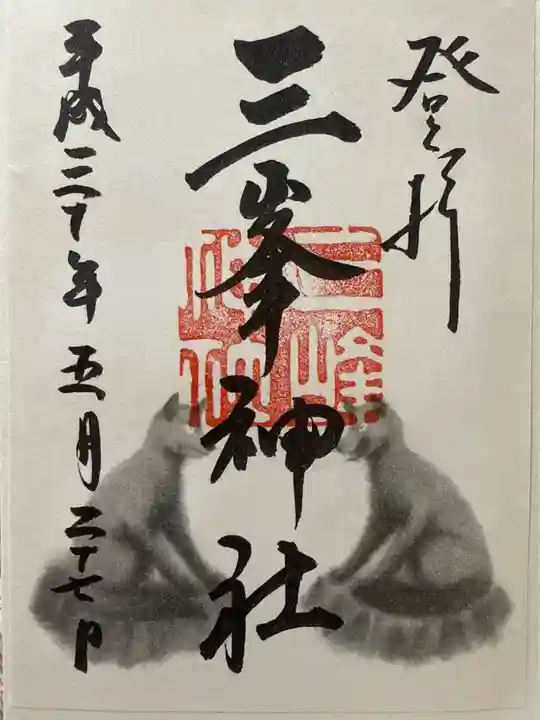 登拝
三峯神社
平成三十年五月二十七日
三峰神社